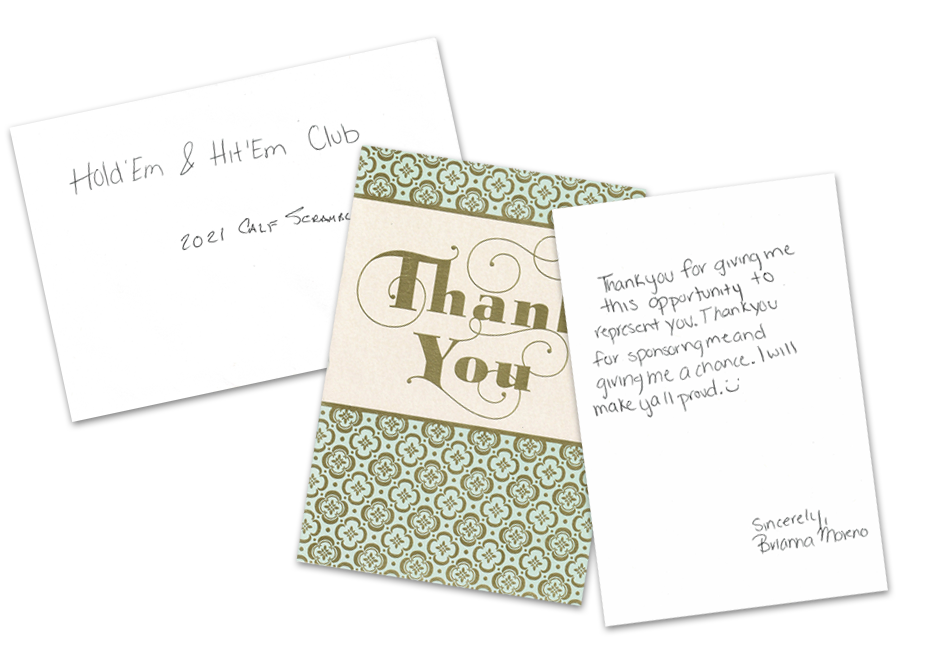 Hold'Em & Hit'Em Club
2021 CALF SCRAMBL
Thank
You
Thankyou for giving me
this opportunity to
represent you. Thankyou
for sponsoring me and
giving me a chance. I will
make ya'll proud.
Sincerely,
Brianna Moreno